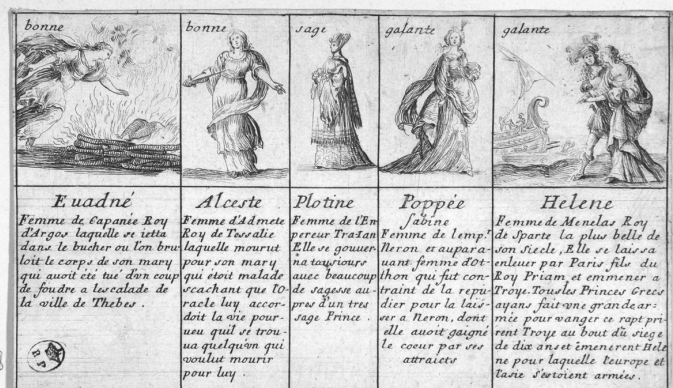 bonne
Euadné
Femme de Capanée Roy
d'Argos laquelle se ietta
dans le bucher ou l'on bru
loit le corps de son mary
qui auoit été tué d'vn coup
de foudre a lescalade de
la ville de Thebes.
bonne
Alceste
Femme d'Admete
Roy de Tessalie
laquelle mourut
pour son mary
qui étoit malade
scachant que l'O-
racle luy accor-
doit la vie pour-
ueu quil se trou-
ua quelqu'vn qui
voulut mourir
pour luy.
sage
Plotine
Femme de l'Em
pereur Traian
Elle se gouuer
na tousiours
auec beaucoup
de sagesse au-
pres d'un tres
sage Prince.
galante
Poppée
sabine
Femme de lemp.r
Neron et aupara-
uant femme d'Ot-
thon qui fut con-
traint de la repu
dier pour la lais-
ser a Neron, dont
elle auoit gaigné
le coeur par ses
attraicts
galante
Helene
Femme de Menelas Roy
de Sparte la plus belle de
son Siecle, Elle se laissa
enleuer par Paris fils du
Roy Priam et emmener a
Troye. Tous les Princes Grecs
ayans fait vne grande ar-
mée pour vanger ce rapt pri-
rent Troye au bout du siege
de dix ans et émenerent Hele
ne pour laquelle leurope et
lasie s'estoient armées.